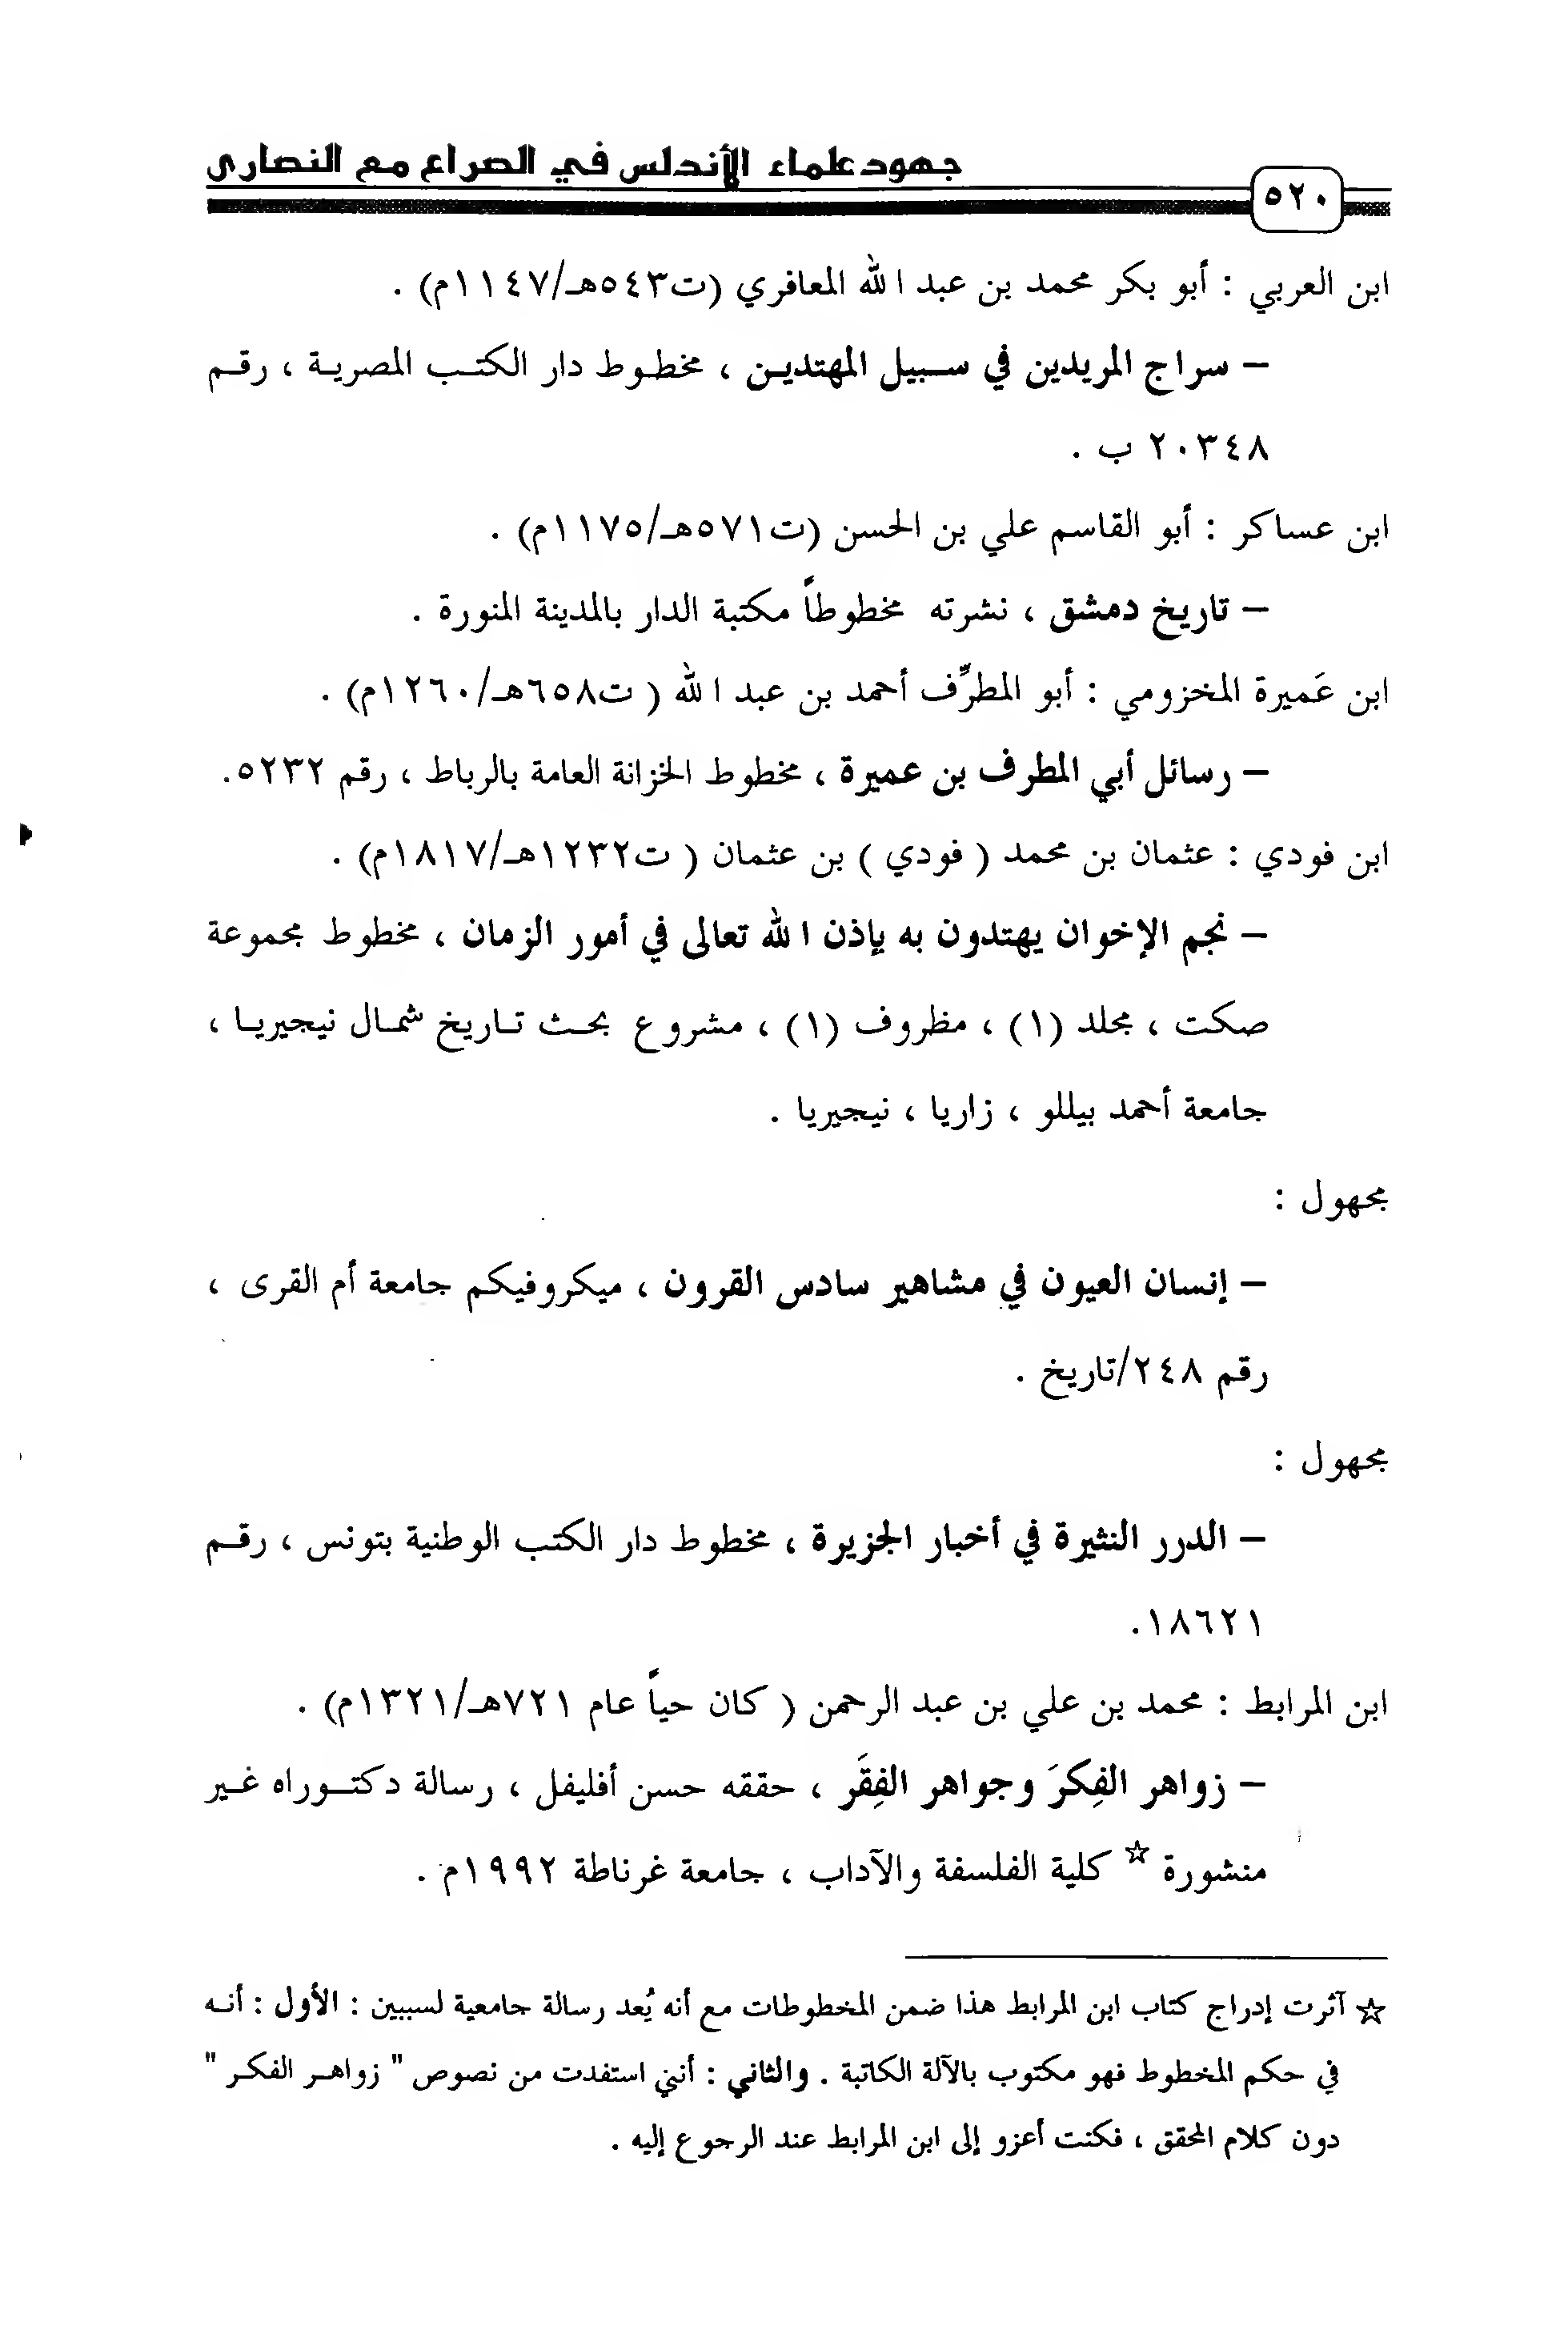 جهود علماء الأندلس في الصراع مع النصارى
٥٢٠
ابن العربي : أبو بكر محمد بن عبد الله المعافري (ت٥٤٣هـ/١١٤٧م) .
– سراج المريدين في سـبيل المهتديـن ، مخطـوط دار الكتـب المصريـة ، رقـم
٢٠٣٤٨ ب .
ابن عساكر : أبو القاسم علي بن الحسن (ت٥٧١هـ/١١٧٥م) .
– تاريخ دمشق ، نشرته مخطوطاً مكتبة الدار بالمدينة المنورة .
ابن عَميرة المخزومي : أبو المطرِّف أحمد بن عبد الله ( ت٦٥٨هـ/١٢٦٠م) .
– رسائل أبي المطرف بن عميرة ، مخطوط الخزانة العامة بالرباط ، رقم ٥٢٣٢.
ابن فودي : عثمان بن محمد ( فودي ) بن عثمان ( ت١٢٣٢هـ/١٨١٧م) .
– نجم الإخوان يهتدون به بإذن الله تعالى في أمور الزمان ، مخطوط مجموعة
صكت ، مجلد (١) ، مظروف (١) ، مشروع بحـث تـاريخ شمـال نيجيريـا ،
جامعة أحمد بيللو ، زاريا ، نيجيريا .
مجهول :
– إنسان العيون في مشاهير سادس القرون ، ميكروفيكم جامعة أم القرى ،
رقم ٢٤٨/تاريخ .
مجهول :
– الدرر النثيرة في أخبار الجزيرة ، مخطوط دار الكتب الوطنية بتونس ، رقـم
١٨٦٢١.
ابن المرابط : محمد بن علي بن عبد الرحمن ( كان حياً عام ٧٢١هـ/١٣٢١م) .
– زواهر الفِكرَ وجواهر الفِقَر ، حققه حسن أفليفل ، رسالة دكتـوراه غـير
منشورة ☆ كلية الفلسفة والآداب ، جامعة غرناطة ١٩٩٢م .
☆ آثرت إدراج كتاب ابن المرابط هذا ضمن المخطوطات مع أنه يُعد رسالة جامعية لسببين : الأول : أنـه
في حكم المخطوط فهو مكتوب بالآلة الكاتبة . والثاني : أنني استفدت من نصوص " زواهـر الفكـر "
دون كلام المحقق ، فكنت أعزو إلى ابن المرابط عند الرجوع إليه .